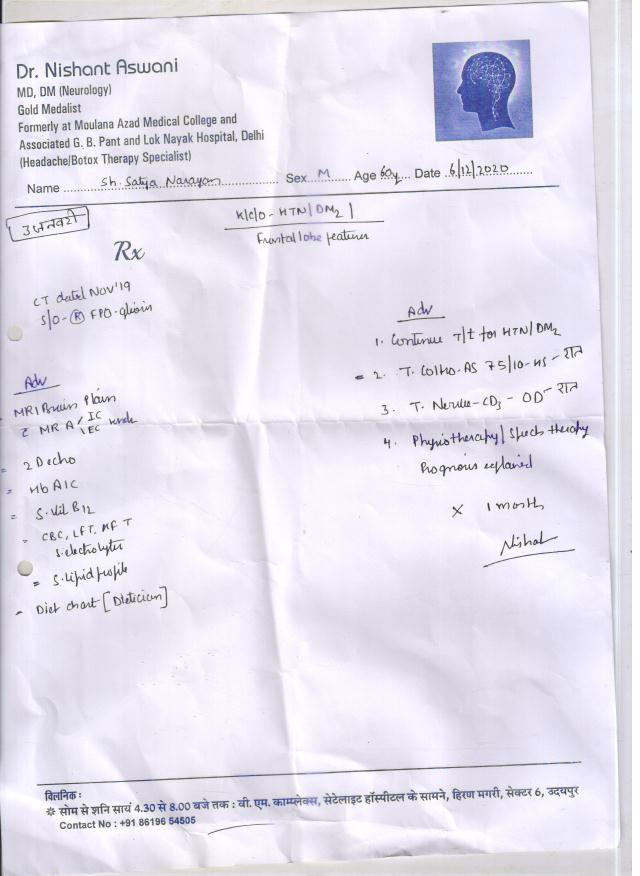 Dr. Nishant Aswani
MD, DM (Neurology)
Gold Medalist
Formerly at Moulana Azad Medical College and
Associated G. B. Pant and Lok Nayak Hospital, Delhi
(Headache/Botox Therapy Specialist)
Name Sh. Satya Narayan Sex M Age 60y Date 6/12/2020
3 जनवरी
K/C/O - HTN/DM2
Frontal lobe features
Rx
CT dated Nov'19
S/O - (R) FPO - gliosis
Adv
MRI Brain Plain
c MRA / IC
EC
= 2D echo
= HbA1C
= S. Vit B12
= CBC, LFT, RFT
S. electrolytes
= S. lipid profile
- Diet chart [Dietician]
Adv
1. Continue T/t for HTN/DM2
= 2. 75/10 - HS - रात
3. T. - OD - रात
4. Physiotherapy / Speech therapy
Prognosis explained
x 1 month
Nishant
क्लिनिक :
* सोम से शनि सायं 4.30 से 8.00 बजे तक : वी. एम. काम्प्लेक्स, सेटेलाइट हॉस्पीटल के सामने, हिरण मगरी, सेक्टर 6, उदयपुर
Contact No : +91 86196 54505